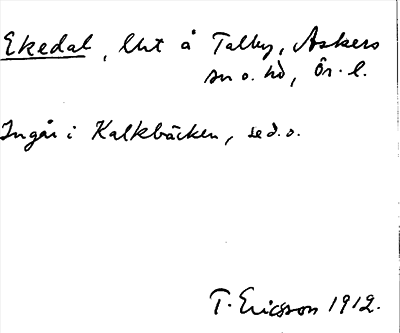 Ekedal, lht å Talby, Askers
sn o. hd, Ör. l.
Ingår i Kalkbäcken, se d. o.
T. Ericsson 1912.